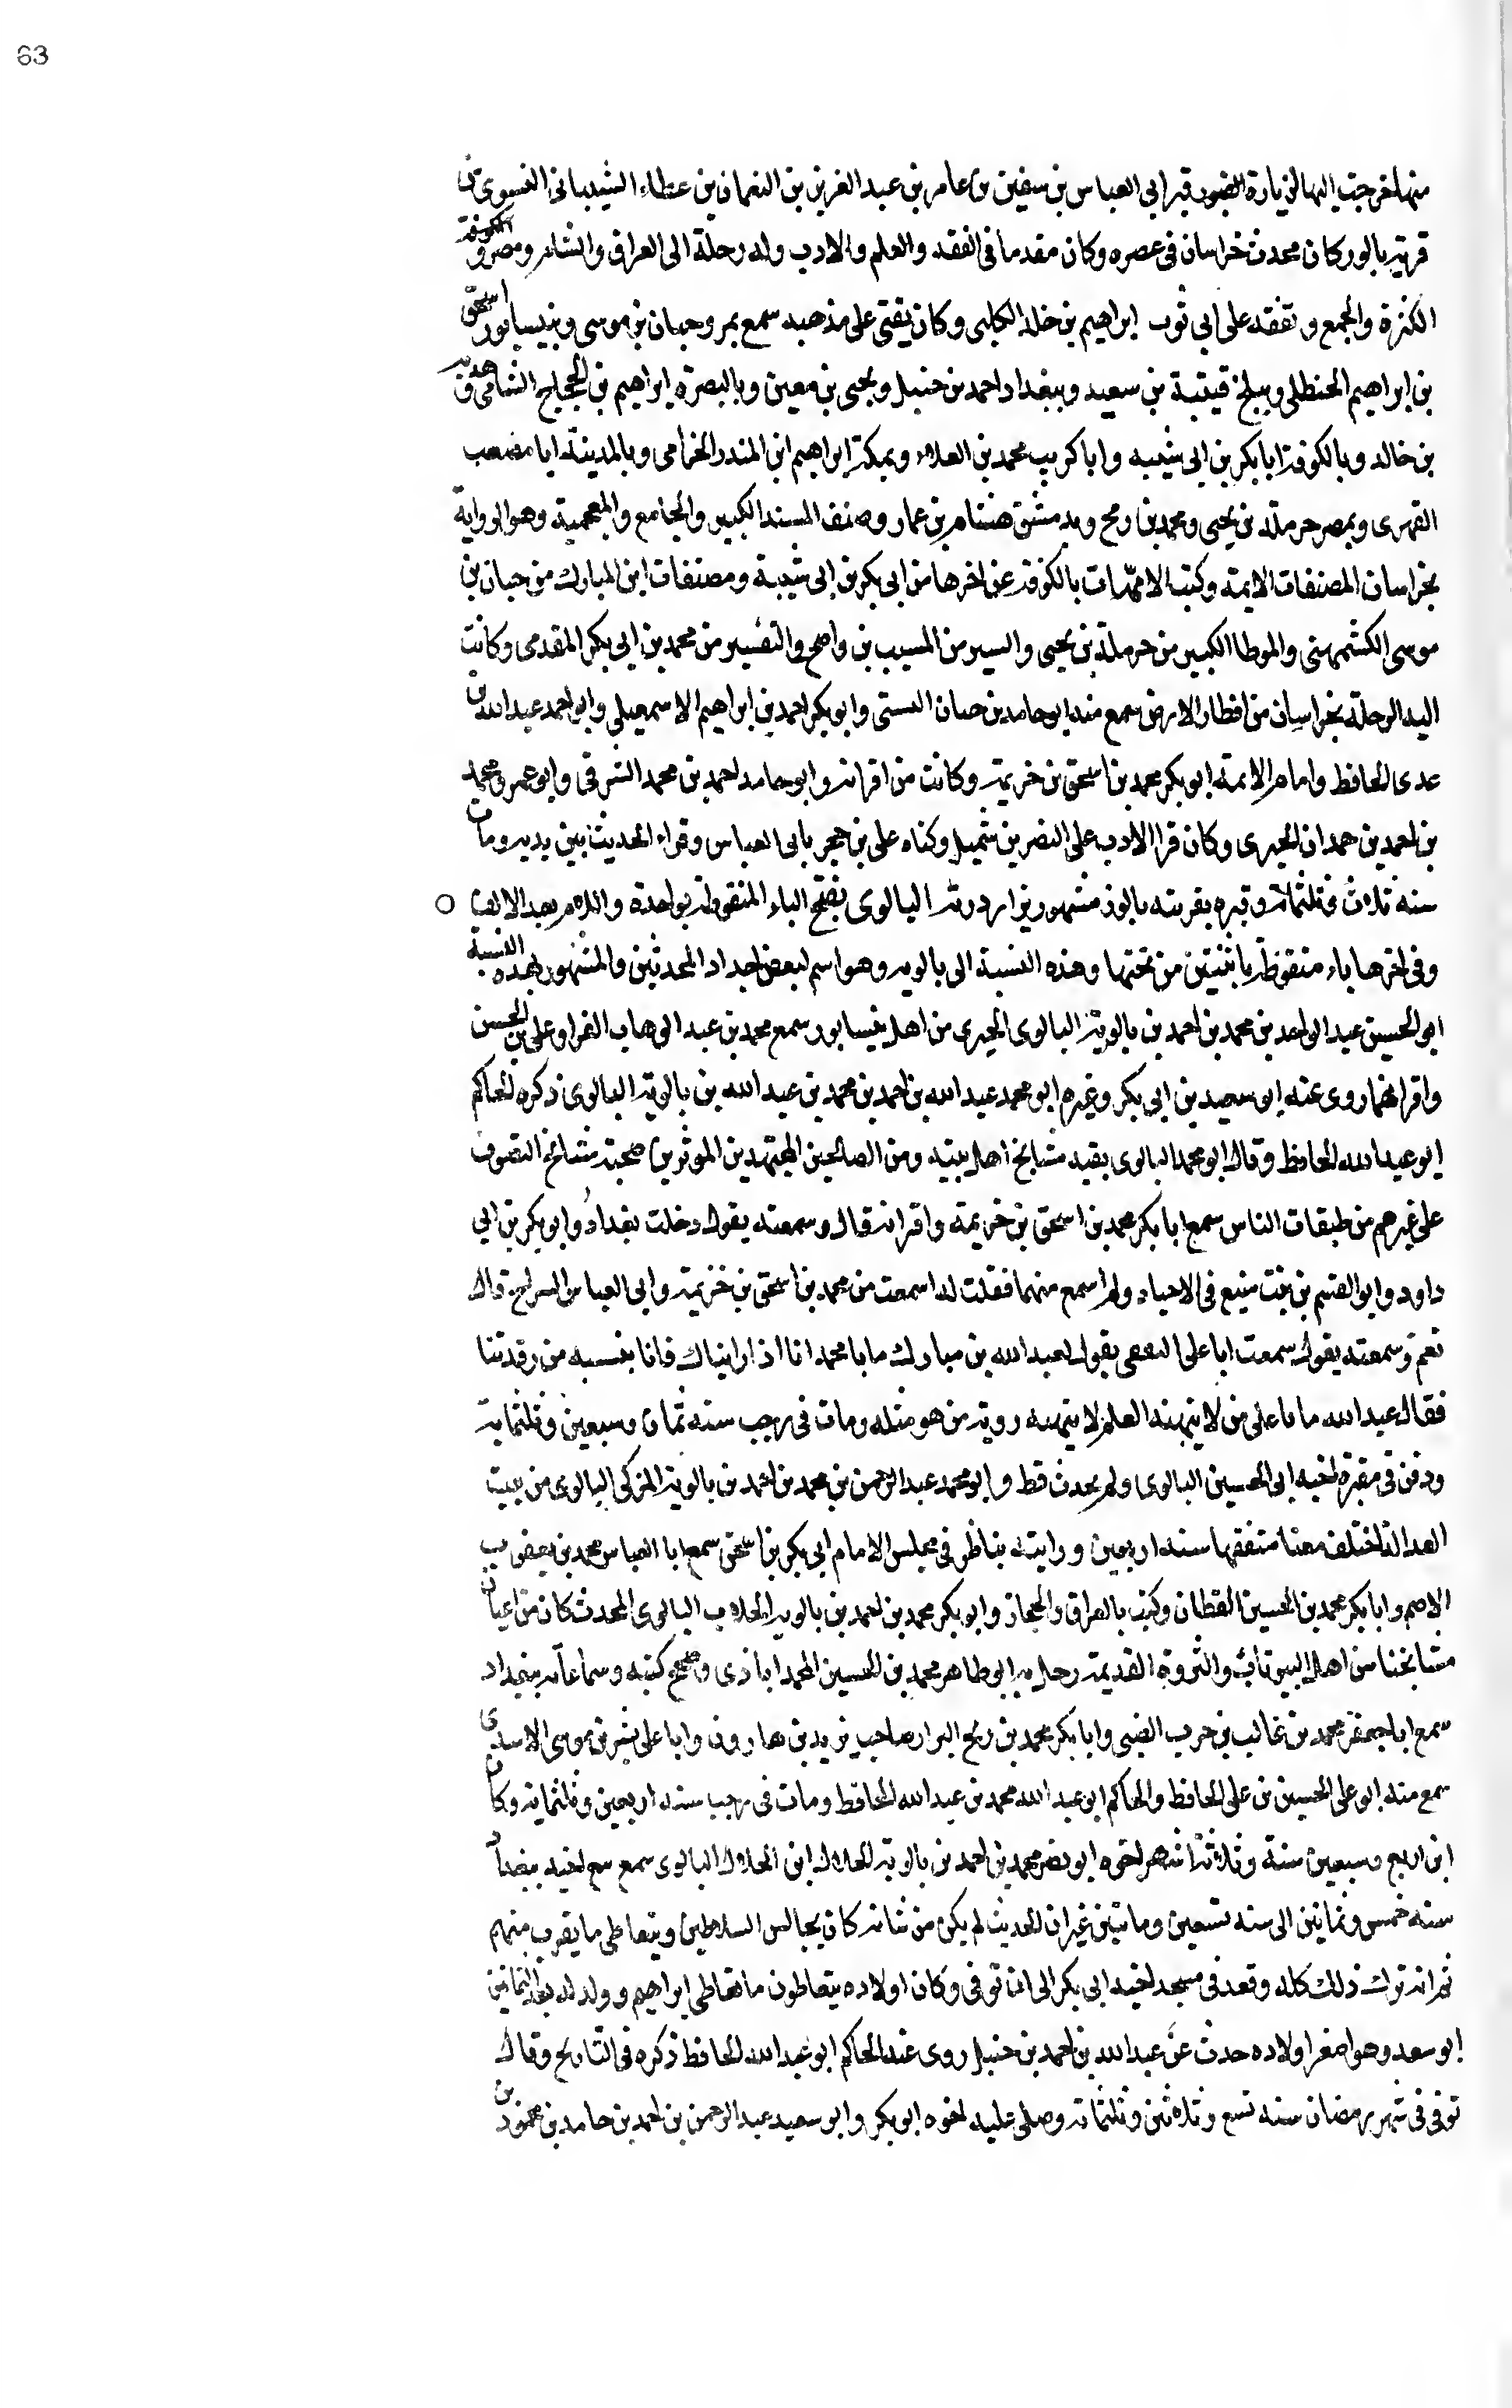 63
منها خرجت اليها لزيارة القبور قبر ابي العباس بن سفين بن عامر بن عبد العزيز بن النعمان بن عطاء الشيباني النسوي من
قرية بالوز كان محدث خراسان في عصره وكان مقدما في الفقه والعلم والادب وله رحلة الى العراق والشام ومصر والكوفة
الكثرة والجمع وتفقه على ابي ثوب ابراهيم بن خلد الكلبي وكان يفتي على مذهبه سمع بمرو حبان بن موسى وبنيسابور اسحق
بن ابراهيم الحنظلي وببلخ قتيبة بن سعيد وببغداد احمد بن حنبل ويحيى بن معين وبالبصرة ابراهيم بن الحجاج الشامي و هدبة
بن خالد وبالكوفة ابا بكر بن ابي شيبه وابا كريب محمد بن العلاء وبمكة ابراهيم ابن المنذر الخزامي وبالمدينة ابا مصعب
الزهري وبمصر حرملة بن يحيى ومحمد بن رمح وبدمشق هشام بن عمار وصنف المسند الكبير والجامع والمعجمية وهو الرواية
بخراسان المصنفات الايمة وكتب الامهات بالكوفة عن اخرها من ابي بكر بن ابي شيبة ومصنفات ابن المبارك من حبان بن
موسى الكشميهني والموطا الكبير من حرملة بن يحيى والسير من المسيب بن واضح والتفسير من محمد بن ابي بكر المقدمي وكانت
اليه الرحلة بخراسان من اقطار الارض سمع منه ابو حامد بن حبان البستي وابو بكر احمد بن ابراهيم الاسمعيلي وابو احمد عبد الله بن
عدي الحافظ وامام الايمة ابو بكر محمد بن اسحق بن خزيمة وكانت من اقرانه وابو حامد احمد بن محمد الشرقي وابو عمرو محمد
بن احمد بن حمدان الحيري وكان قرا الادب على النضر بن شميل وكناه علي بن حجر بابي العباس وقراء الحديث بين يديه ومات
سنه ثلاث وثلثماية وقبره بقريته بالوز مشهور يزار زرته البالوي بفتح الباء المنقوطة بواحدة واللام بعد الالف
وفي اخرها ياء منقوطة باثنتين من تحتها وهذه النسبة الى بالويه وهو اسم لبعض اجداد المحدثين والمشهور بهذه النسبة
ابو الحسين عبد الواحد بن محمد بن احمد بن بالوية البالوي الحيري من اهل نيسابور سمع محمد بن عبد الوهاب الفرا وعلي بن الحسن
واقرانهما روى عنه ابو سعيد بن ابي بكر وغيره ابو محمد عبد الله بن احمد بن محمد بن عبد الله بن بالوية البالوي ذكره الحاكم
ابو عبد الله الحافظ وقال ابو محمد البالوي بقيه مشايخ اهل بيته ومن الصالحين المجتهدين الموثرين صحبة مشايخ التصوف
على غيرهم من طبقات الناس سمع ابا بكر محمد بن اسحق بن خزيمة واقرانه قال وسمعته يقول دخلت بغداد وابو بكر بن ابي
داود وابو القسم بن بنت منيع في الاحياء ولم اسمع منهما فقلت له اسمعت من محمد بن اسحق بن خزيمة وابي العباس السراج قال
نعم وسمعته يقول سمعت ابا علي الثقفي يقول لعبد الله بن مبارك يابا محمد انا اذا رايناك فانا بغسبه من رقدتنا
فقال عبد الله يابا علي من لا ينبهه العلم لا ينبهه روية من هو مثله ومات في رجب سنه ثمان وسبعين وثلثماية
ودفن في مقبرة اخيه ابي الحسين البالوي ولم يحدث قط وابو محمد عبد الرحمن بن محمد بن احمد بن بالوية المزكي البالوي من بيت
العدالة اختلف معنا متفقها سنه اربعين ورايته يناظر في مجلس الامام ابي بكر بن اسحق سمع ابا العباس محمد بن يعقوب
الاصم وابا بكر محمد بن الحسين القطان وكتب بالعراق والحجاز وابو بكر محمد بن احمد بن بالويه الجلاب البالوي المحدث كان من اعيان
مشايخنا من اهل البيوتات والثروة القديمة رحل به ابو طاهر محمد بن الحسين المحمداباذي وصحح كتبه وسماعاته ببغداد
سمع ابا جعفر محمد بن غالب بن حرب الضبي وابا بكر محمد بن ربح البزار صاحب يزيد بن هارون وابا علي بشر بن موسى الاسدي
سمع منه ابو علي الحسين بن علي الحافظ والحاكم ابو عبد الله محمد بن عبد الله الحافظ ومات في رجب سنه اربعين وثلثماية وكان
ابن اربع وسبعين سنة وثلاثة اشهر اخوه ابو نصر محمد بن احمد بن بالوية الجلاب ابن الجلاب البالوي سمع مع اخيه ببغداد
سنه خمس وثمانين الى سنه تسعين وماتين غير ان الحديث لم يكن من شانه كان يجالس السلاطين ويتعاطى ما يقرب منهم
ثم انه ترك ذلك كله وقعد في مسجد اخيه ابي بكر الى ان توفي وكان اولاده يتعاطون ما تعاطى ابراهيم وولد له بعد الثمانين
ابو سعد وهو اصغر اولاده حدث عن عبد الله بن احمد بن حنبل روى عنه الحاكم ابو عبد الله الحافظ ذكره في التاريخ وقال
توفي في شهر رمضان سنه تسع وثلاثين وثلثماية وصلى عليه اخوه ابو بكر وابو سعيد عبد الرحمن بن احمد بن حامد بن محمود بن